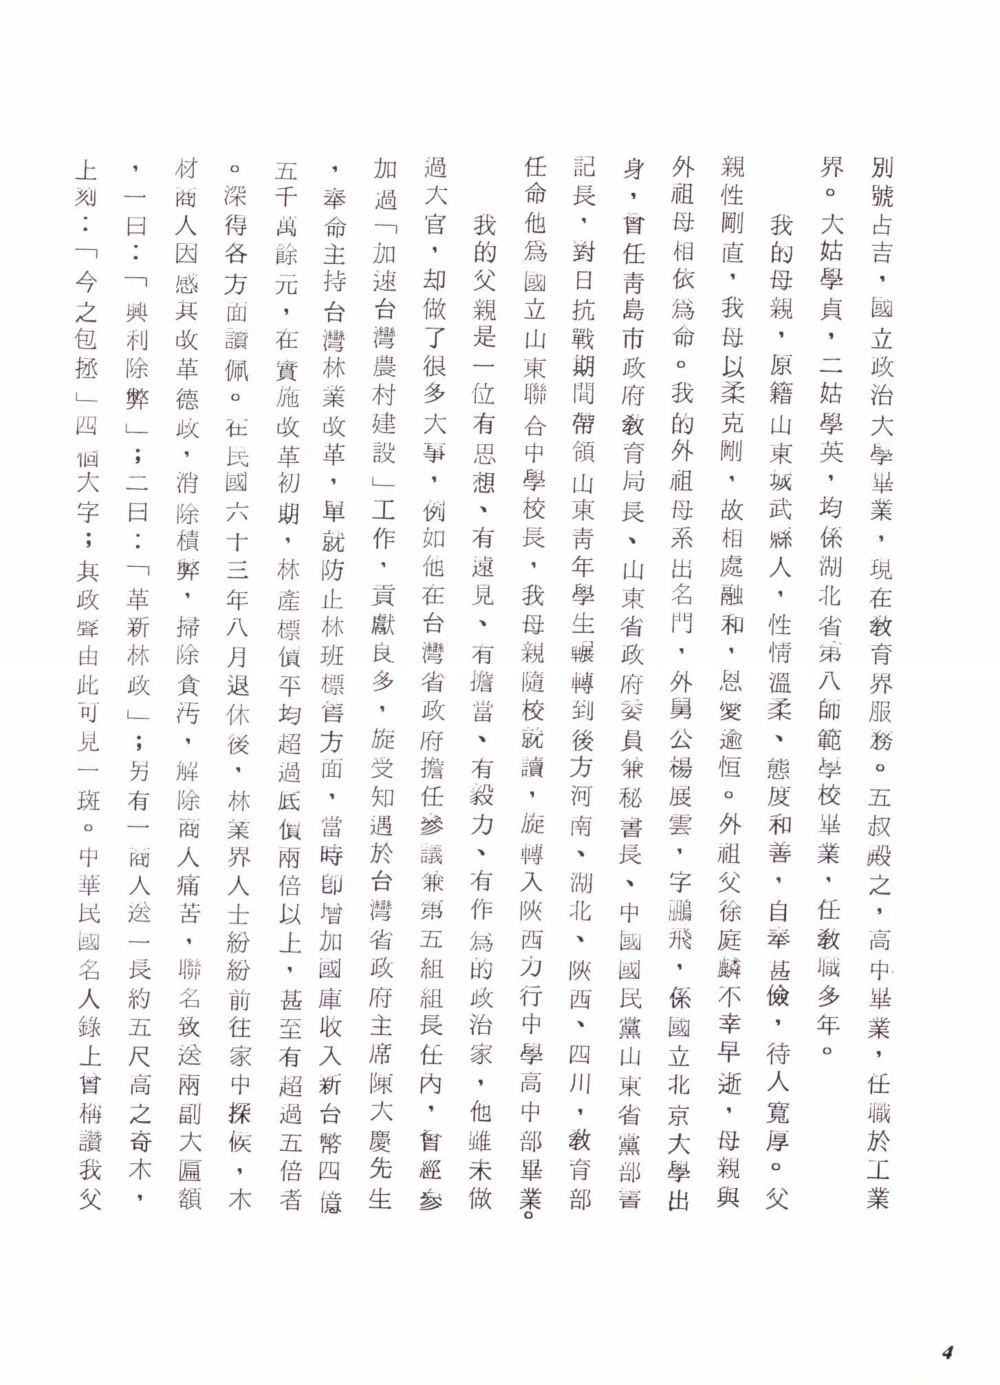 別號占吉，國立政治大學畢業，現在敎育界服務。五叔殿之，高中畢業，任職於工業
界。大姑學貞，二姑學英，均係湖北省第八師範學校畢業，任敎職多年。
我的母親，原籍山東城武縣人，性情溫柔、態度和善，自奉甚儉，待人寬厚。父
親性剛直，我母以柔克剛，故相處融和，恩愛逾恒。外祖父徐庭麟不幸早逝，母親與
外祖母相依爲命。我的外祖母系出名門，外舅公楊展雲，字鵬飛，係國立北京大學出
身，曾任靑島市政府敎育局長、山東省政府委員兼秘書長、中國國民黨山東省黨部書
記長，對日抗戰期間帶領山東靑年學生輾轉到後方河南、湖北、陝西、四川，敎育部
任命他爲國立山東聯合中學校長，我母親隨校就讀，旋轉入陝西力行中學高中部畢業。
我的父親是一位有思想、有遠見、有擔當、有毅力、有作爲的政治家，他雖未做
過大官，却做了很多大事，例如他在台灣省政府擔任參議兼第五組組長任內，曾經參
加過「加速台灣農村建設」工作，貢獻良多，旋受知遇於台灣省政府主席陳大慶先生
，奉命主持台灣林業改革，單就防止林班標售方面，當時卽增加國庫收入新台幣四億
五千萬餘元，在實施改革初期，林產標價平均超過底價兩倍以上，甚至有超過五倍者
。深得各方面讚佩。在民國六十三年八月退休後，林業界人士紛紛前往家中探候，木
材商人因感其改革德政，消除積弊，掃除貪汚，解除商人痛苦，聯名致送兩副大匾額
，一曰：「興利除弊」；二曰：「革新林政」；另有一商人送一長約五尺高之奇木，
上刻：「今之包拯」四個大字；其政聲由此可見一斑。中華民國名人錄上曾稱讚我父
4